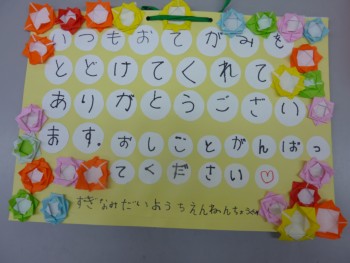 いつもおてがみを
とどけてくれて
ありがとうござい
ます。おしごとがんばっ
てください
すぎなみたいようようちえんねんちょう